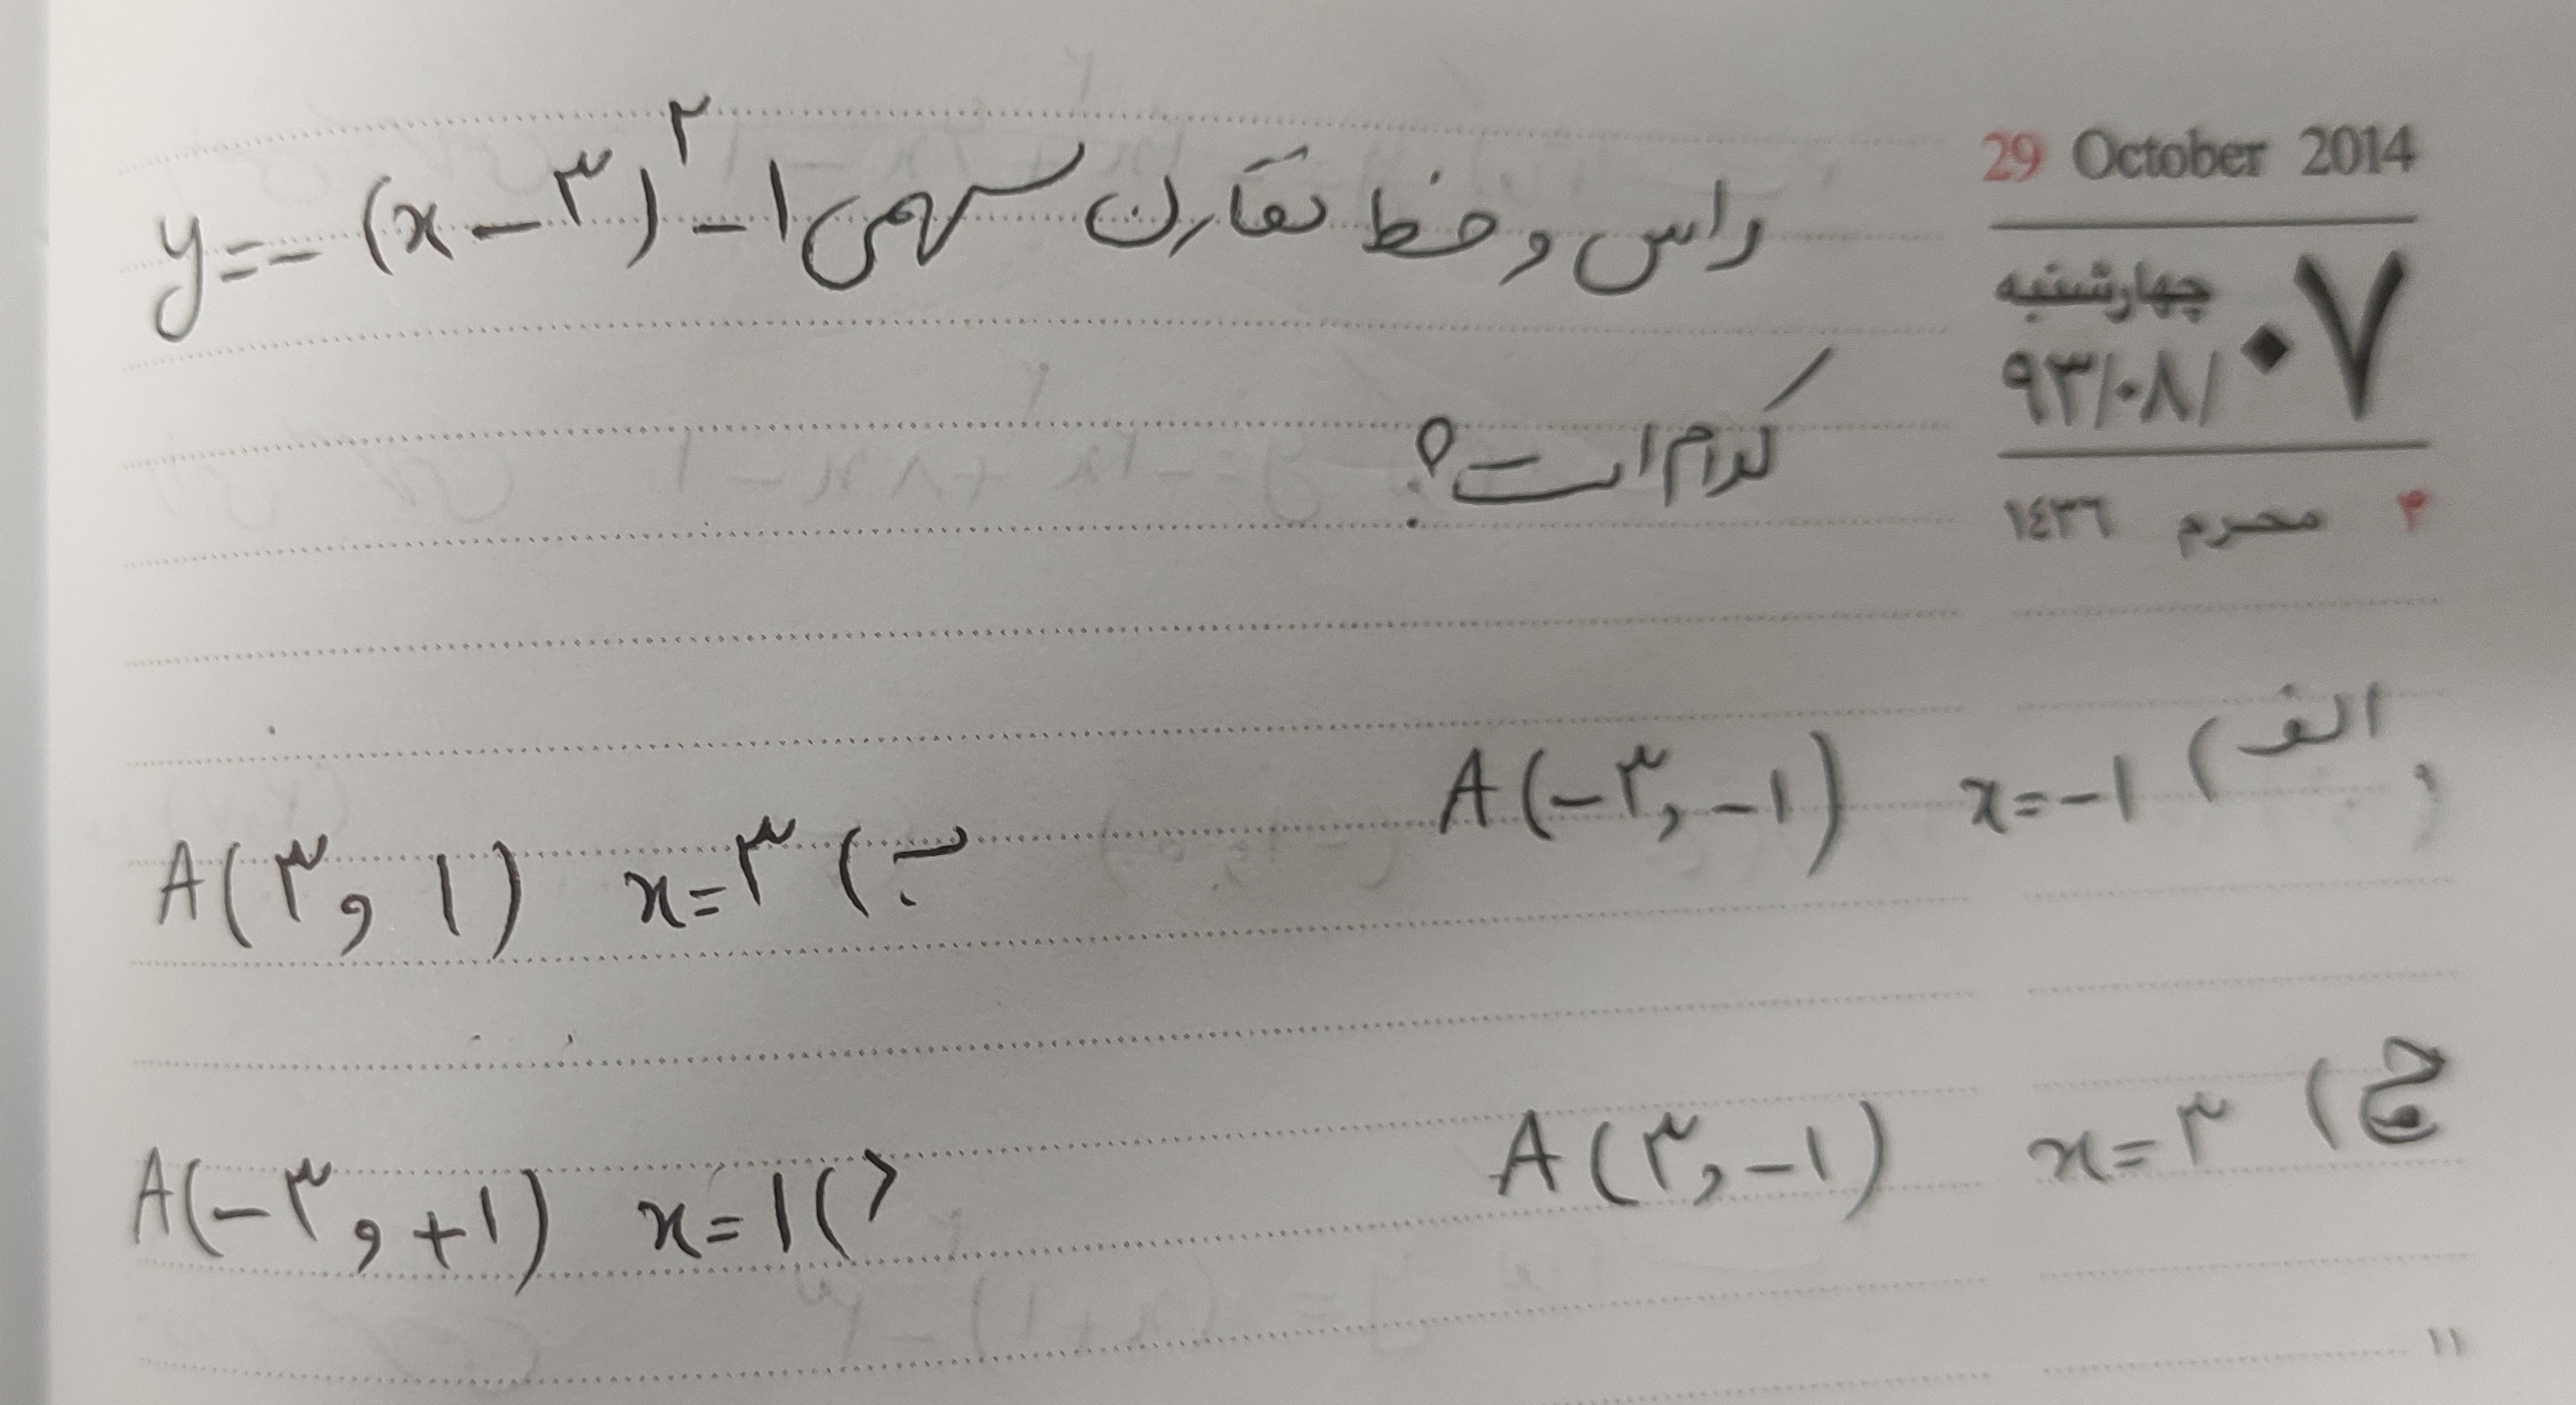 29 October 2014
راس و خط تقارن سهمی y=-(x-۳)^۲-۱
چهارشنبه ۰۷
۹۳/۰۸/
کدام است؟
۴ محرم ۱٤۳٦
الف) x=-۱ A(-۳,-۱)
ب) x=۳ A(۳و۱)
ج) x=۳ A(۳,-۱)
د) x=۱ A(-۳و+۱)
۱۱